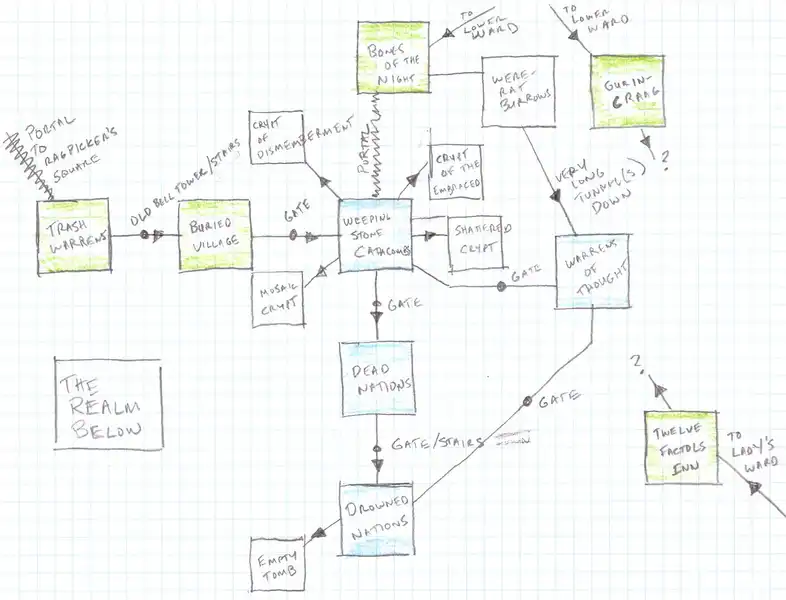 TO
LOWER
WARD
TO
LOWER
WARD
BONES
OF THE
NIGHT
WERE-
RAT
BURROWS
GURIN-
GRAAG
PORTAL
TO
RAGPICKER'S
SQUARE
CRYPT
OF
DISMEMBERMENT
PORTAL
CRYPT
OF THE
EMBRACED
VERY
LONG
TUNNEL(S)
DOWN
?
OLD BELL TOWER/STAIRS
TRASH
WARRENS
BURIED
VILLAGE
GATE
WEEPING
STONE
CATACOMBS
SHATTERED
CRYPT
WARRENS
OF
THOUGHT
MOSAIC
CRYPT
GATE
GATE
THE
REALM
BELOW
DEAD
NATIONS
?
GATE
GATE/STAIRS
TWELVE
FACTOLS
INN
TO
LADY'S
WARD
DROWNED
NATIONS
EMPTY
TOMB